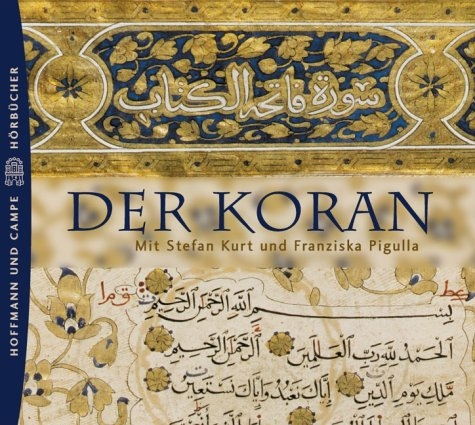 سورة فاتحة الكتاب
DER KORAN
Mit Stefan Kurt und Franziska Pigulla
بسم الله الرحمن الرحيم
الحمد لله رب العالمين
الرحمن الرحيم
ملك يوم الدين
اياك نعبد واياك نستعين
HOFFMANN UND CAMPE HÖRBÜCHER